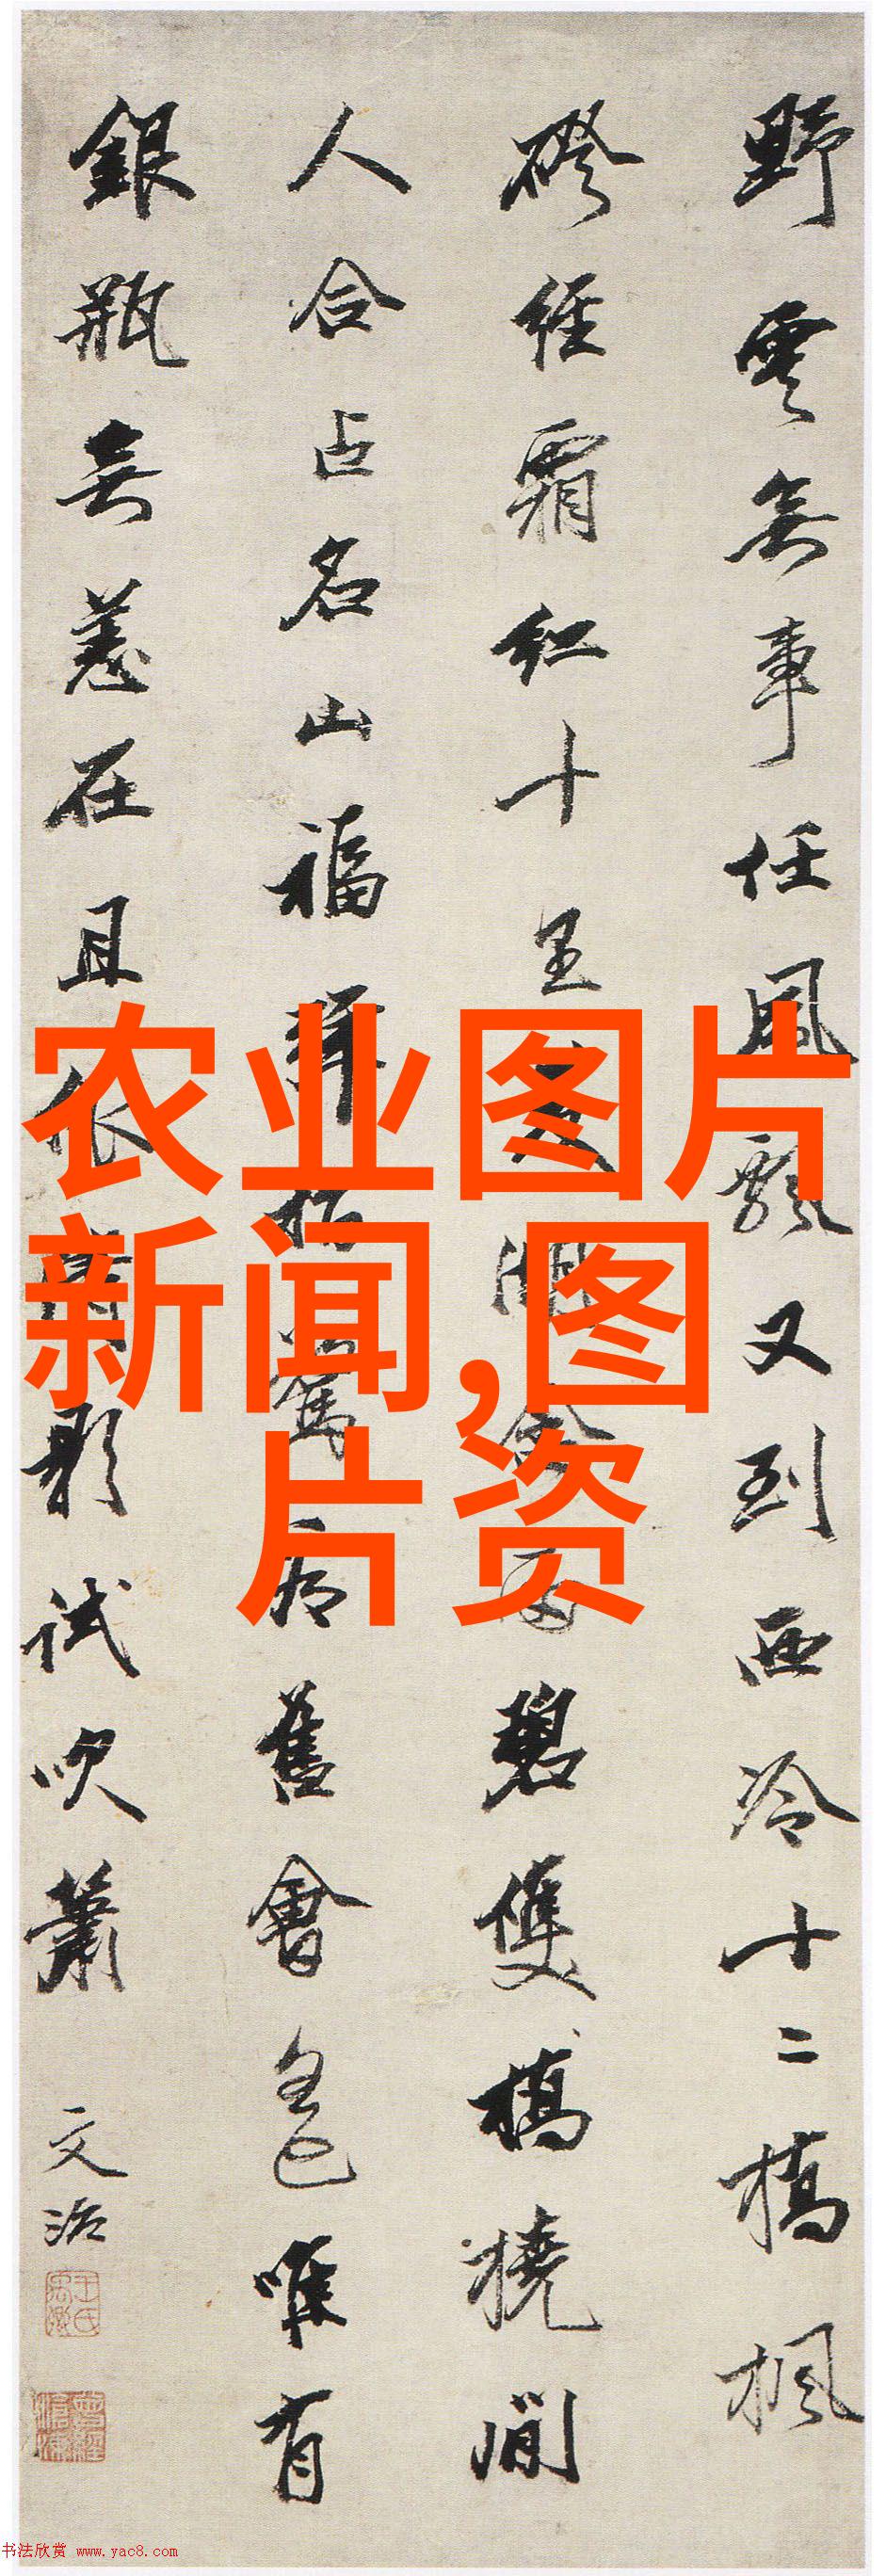 野雲無事任風飄又到西泠十二橋楓
磴經霜紅十里湖雨碧雙橋橈間
人合占名山福舊會全已唯有
銀瓶無恙在且依影試吹簫
文治
农业图片
新闻,图
片资
书法欣赏 www.yac8.com